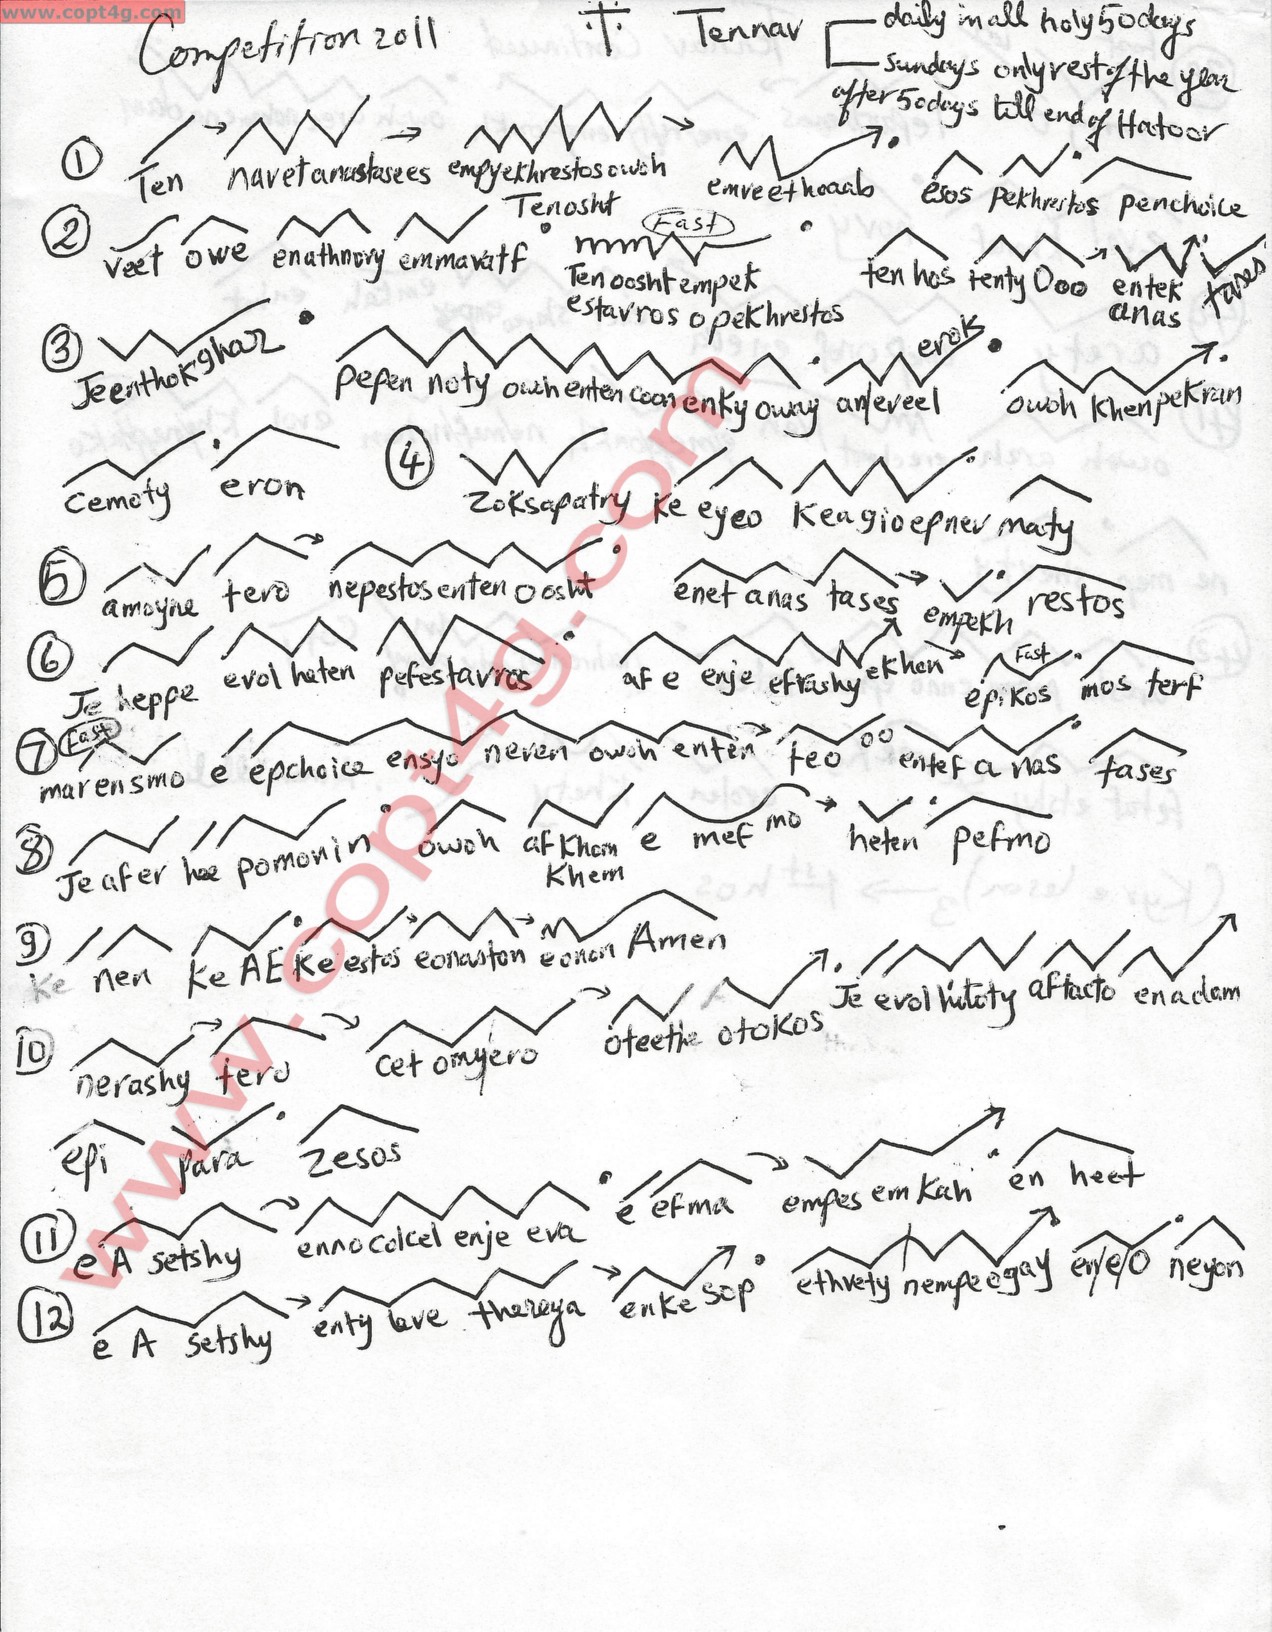 www.copt4g.com
Competition 2011 Tennav daily in all holy 50 days
sundays only rest of the year
after 50 days till end of Hatoor
1 Ten navetanastasees empyekhrestosowoh emveethoaab esos pekhrestos penchoice
Tenosht
2 veet owe enathnovy emmavatf Fast Tenoosht empek estavros o pekhrestos ten hos tenty Ooo entek anas tases
3 Jeenthokghar pepen noty owoh enten coan enky oway an/eveel erok owoh khenpekran
cemoty eron 4 zoksapatry ke eyeo keagioepnev maty
5 amoyne tero nepestos enten oosht enet anas tases empekh restos
6 Je heppe evol heten pefestavros af e enje efrashy ekhon epikos Fast mos terf
7 Fast marensmo e epchoice ensyo neven owoh enten teo oo entef a nas tases
8 Je afer hee pomonin owoh af khom khem e mef mo heten pefmo
9 ke nen ke AE ke estos eonaston eonon Amen
Je evol hitoty aftacto enadam
10 nerashy tero cet omyero oteethe otokos
epi para zesos
11 e A setshy enno colcel enje eva e efma empes em kah en heet
12 e A setshy enty lave thereya enke sop ethvety nempeegay en/e/o neyon
www.copt4g.com